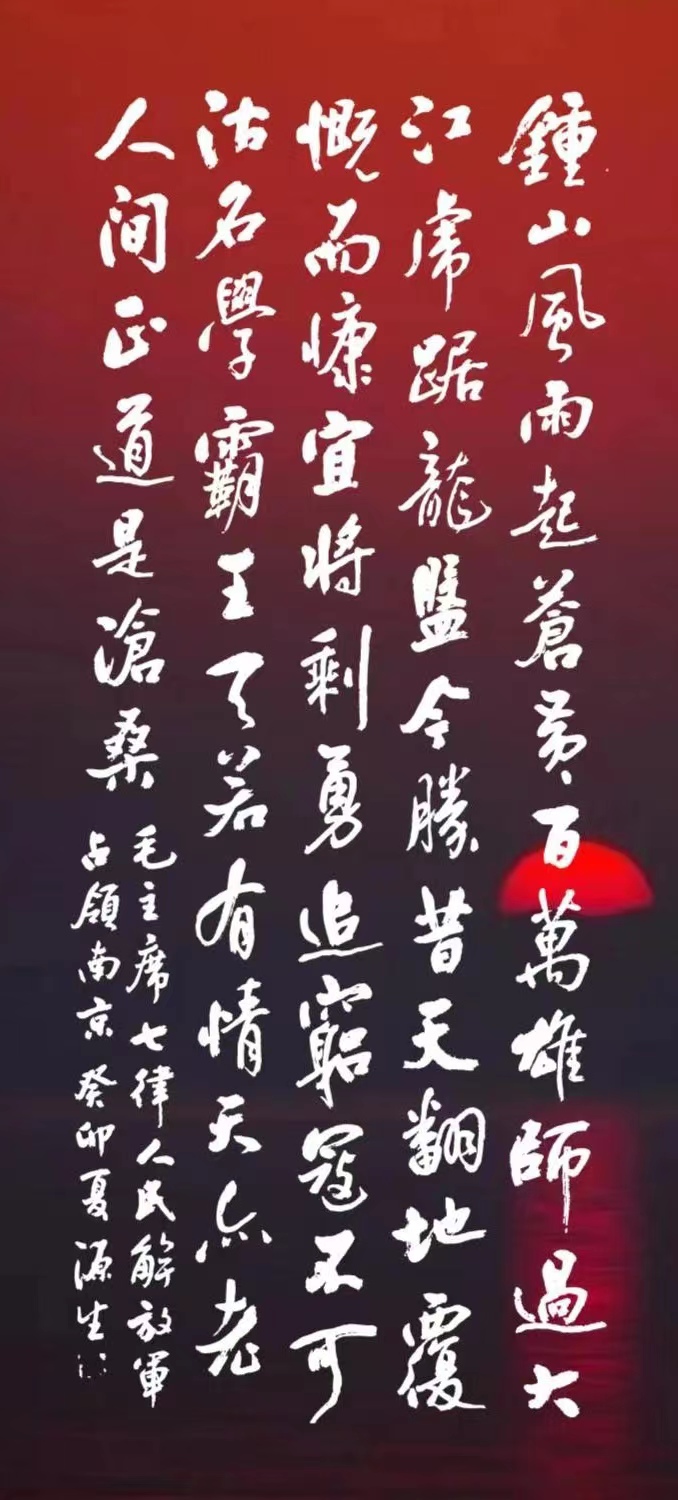 鍾山風雨起蒼黃百萬雄師過大
江虎踞龍盤今勝昔天翻地覆
慨而慷宜將剩勇追窮寇不可
沽名學霸王天若有情天亦老
人间正道是滄桑
毛主席七律人民解放軍
占領南京癸卯夏源生